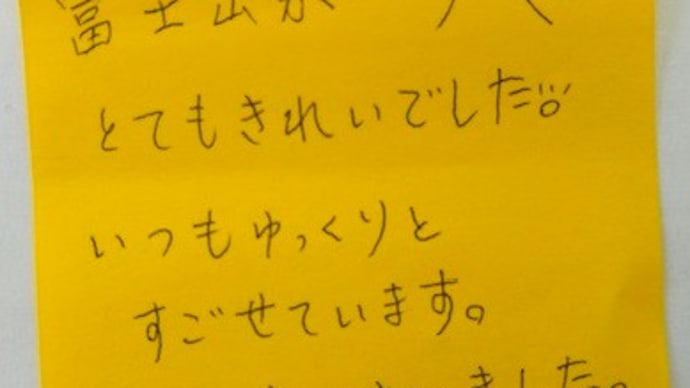 富士山が
とてもきれいでした
いつもゆっくりと
すごせています。
ました。